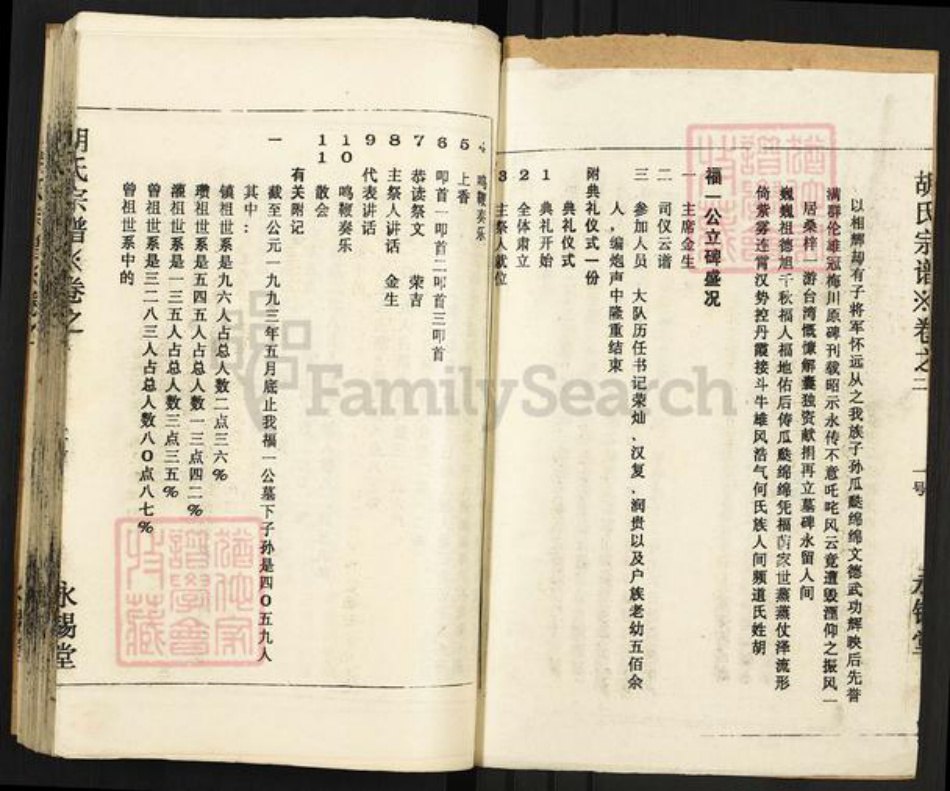 胡氏宗谱※卷之二
一号
永锡堂
以相解却有子将军怀远从之我族子孙瓜瓞绵绵文德武功辉映后先誉
满群伦雄冠梅川原碑刊载昭示永传不意叱咤风云竟遭毁湮仰之振风一
居桑梓一游台湾慨慷解囊独资献捐再立墓碑永留人间
巍巍祖德旭千秋福人福地佑后俦瓜瓞绵绵凭福荫家世燕燕仗泽流形
倚紫雾连霄汉势控丹霞接斗牛雄风浩气何氏族人间频道氏姓胡
福一公立碑盛况
一 主席金生
二 司仪云谱
三 参加人员 大队历任书记荣灿、汉复、润贵以及户族老幼五佰余
人，编炮声中隆重结束
附典礼仪式一份
典礼仪式
1 典礼开始
2 全体肃立
3 主祭人就位
4 鸣鞭奏乐
5 上香
6 叩首一叩首二叩首三叩首
7 恭读祭文 荣吉
8 主祭人讲话 金生
9 代表讲话
10 鸣鞭奏乐
11 散会
有关附记
一 截至公元一九九三年五月底止我福一公墓下子孙是四0五九人
其中：
镇祖世系是九六人占总人数二点三六%
瓒祖世系是五四五人占总人数一三点四二%
灏祖世系是一三五人占总人数三点三五%
曾祖世系是三二八三人占总人数八0点八七%
曾祖世系中的
胡氏宗谱※卷之
永锡堂
FamilySearch